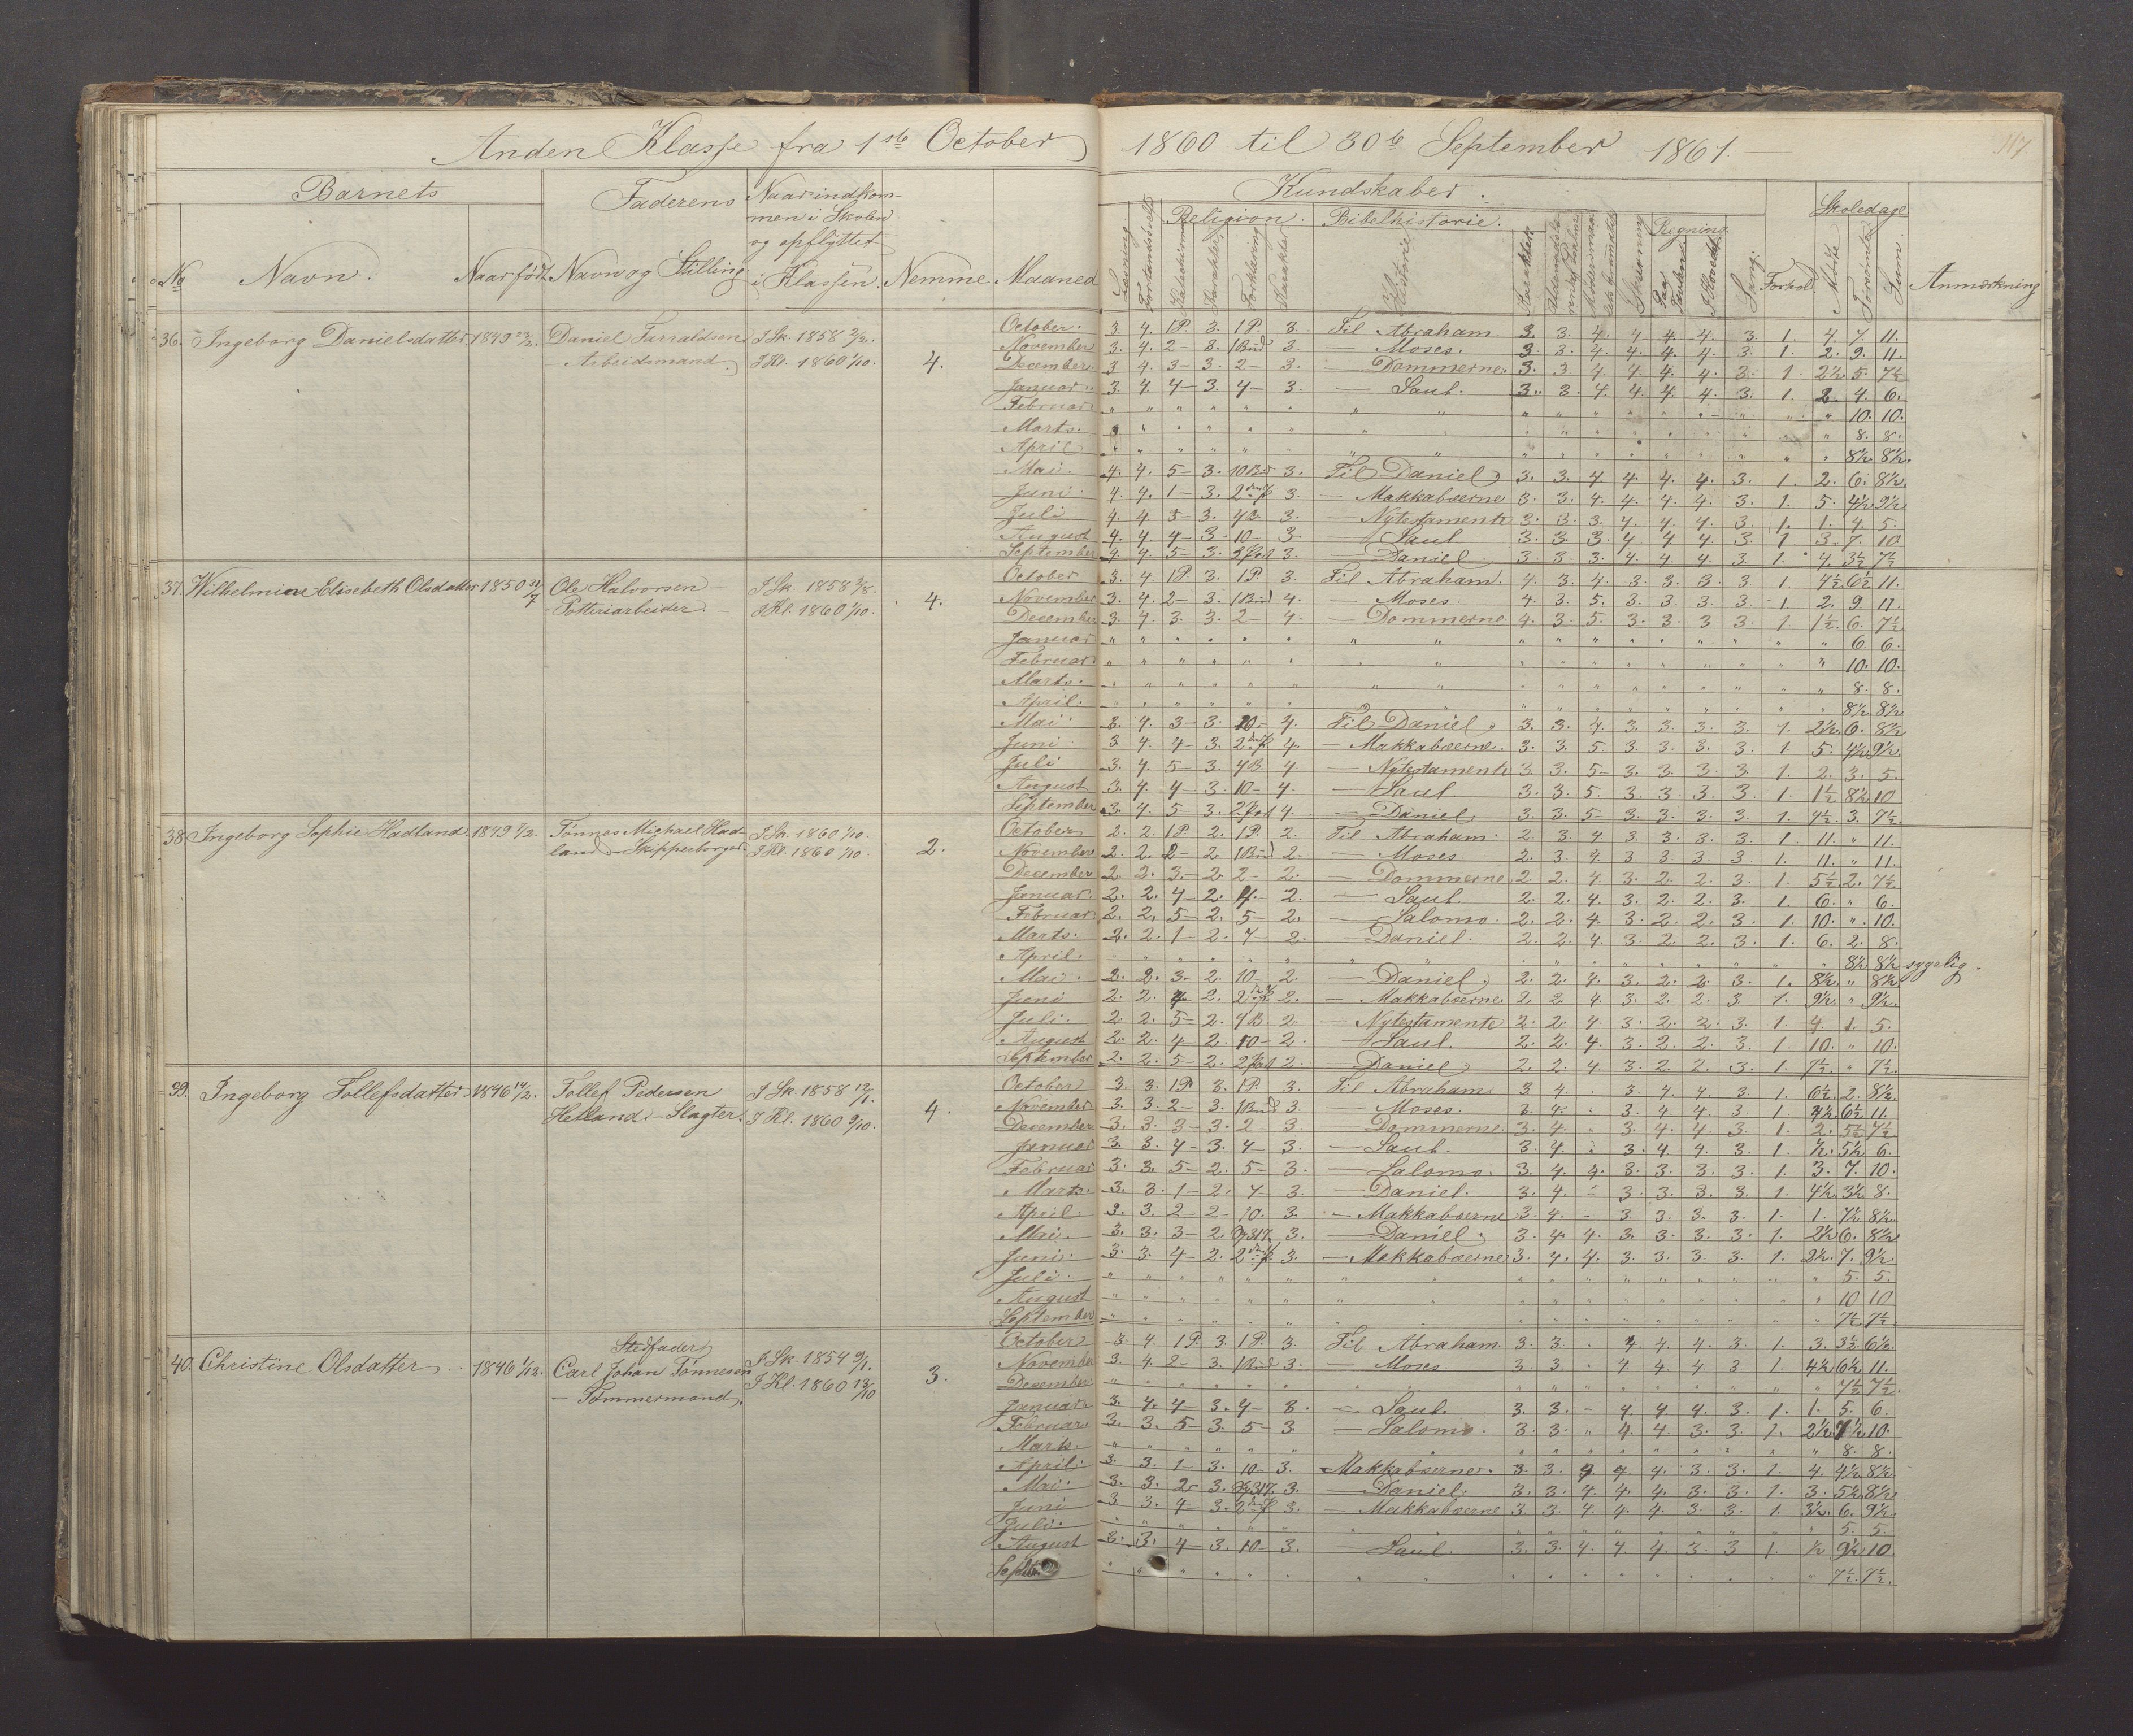 Anden Klasse fra 1ste October 1860 til 30te September 1861.
Barnets Faderens Naar indkom-
men i Skolen
og opflyttet
i Klassen.
No Navn. Naar født Navn og Stilling Nemme Maaned
Kundskaber.
Religion. Bibelhistorie. Regning. Skoledage
Læsning Forstandsøvelse Katechismus Karakter Forklaring Karakter Historie Karakter Modersmaal Skrivning Paa Tavlen I Hovedet Sang. Forhold Mødte Forsømte Sum. Anmærkning
36. Ingeborg Danielsdatter 1849 Daniel Arbeidsmand. I Sk. 1858 I Kl. 1860 1/10. 4.
October. 3. 4. 1P. 3. 1P. 3. Til Abraham. 3. 3. 4. 4. 4. 4. 3. 1. 4. 7. 11.
November 3. 4. 2- 3. 1Bud 3. - Moses. 3. 3. 4. 4. 4. 4. 3. 1. 2. 9. 11.
December. 3 4. 3- 3. 2- 3. - Dommerne. 3. 3 4 4. 4. 4. 3. 1. 2½. 5. 7½
Januar. 3. 4 4- 3. 4- 3. - Saul. 3. 3. 4. 4. 4. 4. 3. 1. 2. 4. 6.
Februar " " " " " " " " " " " " " " " " " 10. 10.
Marts. " " " " " " " " " " " " " " " 8. 8.
April " " " " " " " " " " " " " " " " 8½ 8½.
Mai. 4. 4. 5- 3. 10Bud 3. Til Daniel, 3. 3. 4. 4. 4. 4. 3. 1. 2. 6. 8½
Juni. 4. 4. 1- 3. 3. - Makkabæerne 3. 3. 4. 4. 4. 4. 3. 1. 5. 4½ 9½
Juli 4. 4 3- 3. 4B. 3. - Nytestamente 3. 3. 3. 4. 4. 4. 3. 1. 1. 4. 5.
August 4. 4. 4- 3- 10- 3. - Saul 3. 3. 3. 4. 4 4. 3. 1 3. 7. 10
September 4. 4. 5- 3. 3. - Daniel. 3. 3. 3. 4. 4. 4. 3 1. 4. 3½ 7½
37. Wilhelmine Elisebeth Olsdatter 1850 Ole Halvorsen - Potteriarbeider. - I Sk. 1858 I Kl. 1860 1/10. 4.
October 3. 4. 1P. 3. 1P. 3. Til Abraham. 4. 3. 4. 3. 3. 3. 3. 1. 4½ 6½ 11.
November 3. 4. 2- 3. 1Bud 4. - Moses. 4. 3. 5. 3. 3. 3. 3. 1 2. 9. 11.
December 3. 4. 3. 3. 2- 4. - Dommerne. 4. 3. 5. 3. 3. 3. 3. 1. 1½. 6. 7½
Januar " " " " " " " " " " " " " " " " 6. 6.
Februar. " " " " " " " " " " " " " " " 10. 10.
Marts. " " " " " " " " " " " " " " " 8. 8.
April. " " " " " " " " " " " " " " " 8½ 8½
Mai. 3. 4. 3- 3. 10- 4. Til Daniel. 3. 3. 4. 3. 3. 3. 3. 1. 2½. 6. 8½
Juni 3 4. 4- 3. 4. - Makkabæerne. 3. 3. 5 3. 3. 3. 3. 1. 5. 4½ 9½
Juli 3. 4. 5- 3. 4B. 4 - Nytestamente 3 3. 5- 3. 3. 3. 3. 1. 2. 3. 5.
August 3. 4. 4- 3. 10- 4. - Saul. 3. 3. 5. 3. 3. 3. 3. 1. 1½ 8½ 10
September 3. 4. 5- 3. 4. - Daniel. 3. 3. 5- 3. 3. 3. 3. 1. 4½. 3. 7½.
38. Ingeborg Sophie Hadland. 1849 Tönnes Michael Had-
land - Skipperborger I Sk. 1860 1/10. I Kl. 1860 1/10. 2.
October 2. 2. 1P. 2. 1P. 2. Til Abraham. 2. 3. 4 3. 3. 3. 3. 1. 11. " 11.
November 2. 2. 2- 2. 1Bud 2. - Moses. 2. 3. 4. 3. 3. 3. 3. 1. 11. " 11.
December 2. 2. 3.- 2. 2- 2. - Dommerne. 2 2. 4. 3. 2. 2. 3. 1. 5½. 2. 7½.
Januar. 2. 2. 4- 2. 4- 2. - Saul. 2. 2. 4. 3. 2. 2. 3. 1. 6. " 6.
Februar 2. 2. 5- 2. 5- 2. - Salomo. 2. 2. 4. 3. 2. 2. 3. 1. 10. " 10.
Marts. 2. 2. 1- 2. 7- 2. - Daniel. 2. 2. 4. 3. 2. 2. 3. 1. 6. 2. 8.
April. " " " " " " " " " " " " " " " 8½ 8½ sygelig.
Mai. 2. 2. 3- 2. 10- 2. - Daniel, 2. 2. 4. 3. 2. 2. 3. 1. 8½. " 8½
Juni 2. 2. 4- 2. 2. - Makkabæerne. 2 2. 4. 3. 2 2. 3. 1. 9½. " 9½.
Juli. 2. 2. 5- 2. 4B. 2. - Nytestamente 2. 2. 4. 3. 2. 2. 3. 1. 4. 1. 5.
August 2. 2. 4- 2. 10- 2. - Saul. 2. 2. 4. 3. 2. 2. 3. 1. 10. " 10.
September 2. 2. 5- 2. 2. - Daniel 2. 2. 4 3. 2. 2. 3. 1. 7½. " 7½.
39. Ingeborg Tollefsdatter. 1846 14/2. Tollef Pedersen
Hetland. - Slagter. I Sk. 1858 12/1. I Kl. 1860 9/10. 4.
October 3. 3. 1P 3. 1P. 3. Til Abraham. 3 4. . 3. 4. 4. 3. 1. 6½. 2. 8½.
November 3. 3. 2- 3. 1Bud 3. - Moses. 3. 4. . 3. 4. 4 3. 1 4½ 6½ 11.
December 3. 3. 3- 3. 2- 3. - Dommerne. 3. 4. " 3. 4. 4. 3. 1. 2. 5½ 7½
Januar 3. 3. 4- 3. 4- 3. - Saul. 3. 4. . 3. 4 4. 3. 1. ½. 5½ 6.
Februar 3. 3. 5- 2. 5- 3. - Salomo. 3. 4. 4. 3. 3. 3. 3. 1. 3. 7. 10.
Marts. 3. 3. 1- 2. 7- 3. - Daniel. 3. 4. - 3. 3. 3. 3. 1. 4½ 3½ 8.
April 3. 3. 2- 2- 10. 3. - Makkabæerne 3. 4. - 3. 3. 3. 3. 1. 1. 7½ 8½.
Mai. 3. 3. 3- 2. 3. - Daniel. 3. 4. 4. 3. 3. 3. 3. 1. 2½ 6. 8½
Juni. 3. 3. 4- 2. 3. - Makkabæerne 3. 4. 4. 3. 3. 3. 3. 1. 2½. 7. 9½.
Juli. " " " " " " " " " " " " " " " 5. 5.
August " " " " " " " " " " " " " " " 10 10
September " " " " " " " " " " " " " " " 7½ 7½
40. Christine Olsdatter. 1846 1/12. Stedfader
Carl Johan Tönnesen
- Tömmermand. I Sk. 1854 9/1. I Kl. 1860 13/10 3.
October 3. 4. 1P. 3. 1P. 3. Til Abraham. 3. 3. . 4. 4. 4. 3. 1. 3. 3½ 6½
November 3. 4. 2- 3. 1Bud 3. - Moses. 3 3 . 4 4. 4 3 1. 4½ 6½ 11.
December " " " " " " " " " " " " " " " 7½ 7½.
Januar 3. 4. 4- 3. 4- 3. - Saul. 3. 3. - 4. 4. 4. 3. 1. 1. 5. 6.
Februar. 3. 3. 5- 3. 5- 3. - Salomo. 3. 3. " 4. 4. 3. 3. 1. 2½. 7½ 10.
Marts. " " " " " " " " " " " " " " " 8. 8.
April. 3. 3. 1- 3. 10- 3. - Makkabæerne. 3. 3. 4 4. 4. 3. 3. 1. 4. 4½ 8½
Mai. 3. 3. 2- 3. 3. - Daniel. 3. 3. 4. 4. 4. 3. 3. 1. 3. 5½ 8½
Juni 3. 3. 4- 3. 3. - Makkabæerne 3. 3. 4. 4. 4. 3. 3. 1. 3½. 6. 9½
Juli. " " " " " " " " " " " " " " " 5. 5.
August 3. 3. 4- 3. 10- 3. - Saul. 3. 3. 4. 4. 4. 3. 3 1. ½ 9½ 10
Sept " " " " " " " " " " " " " " 7½. 7½.